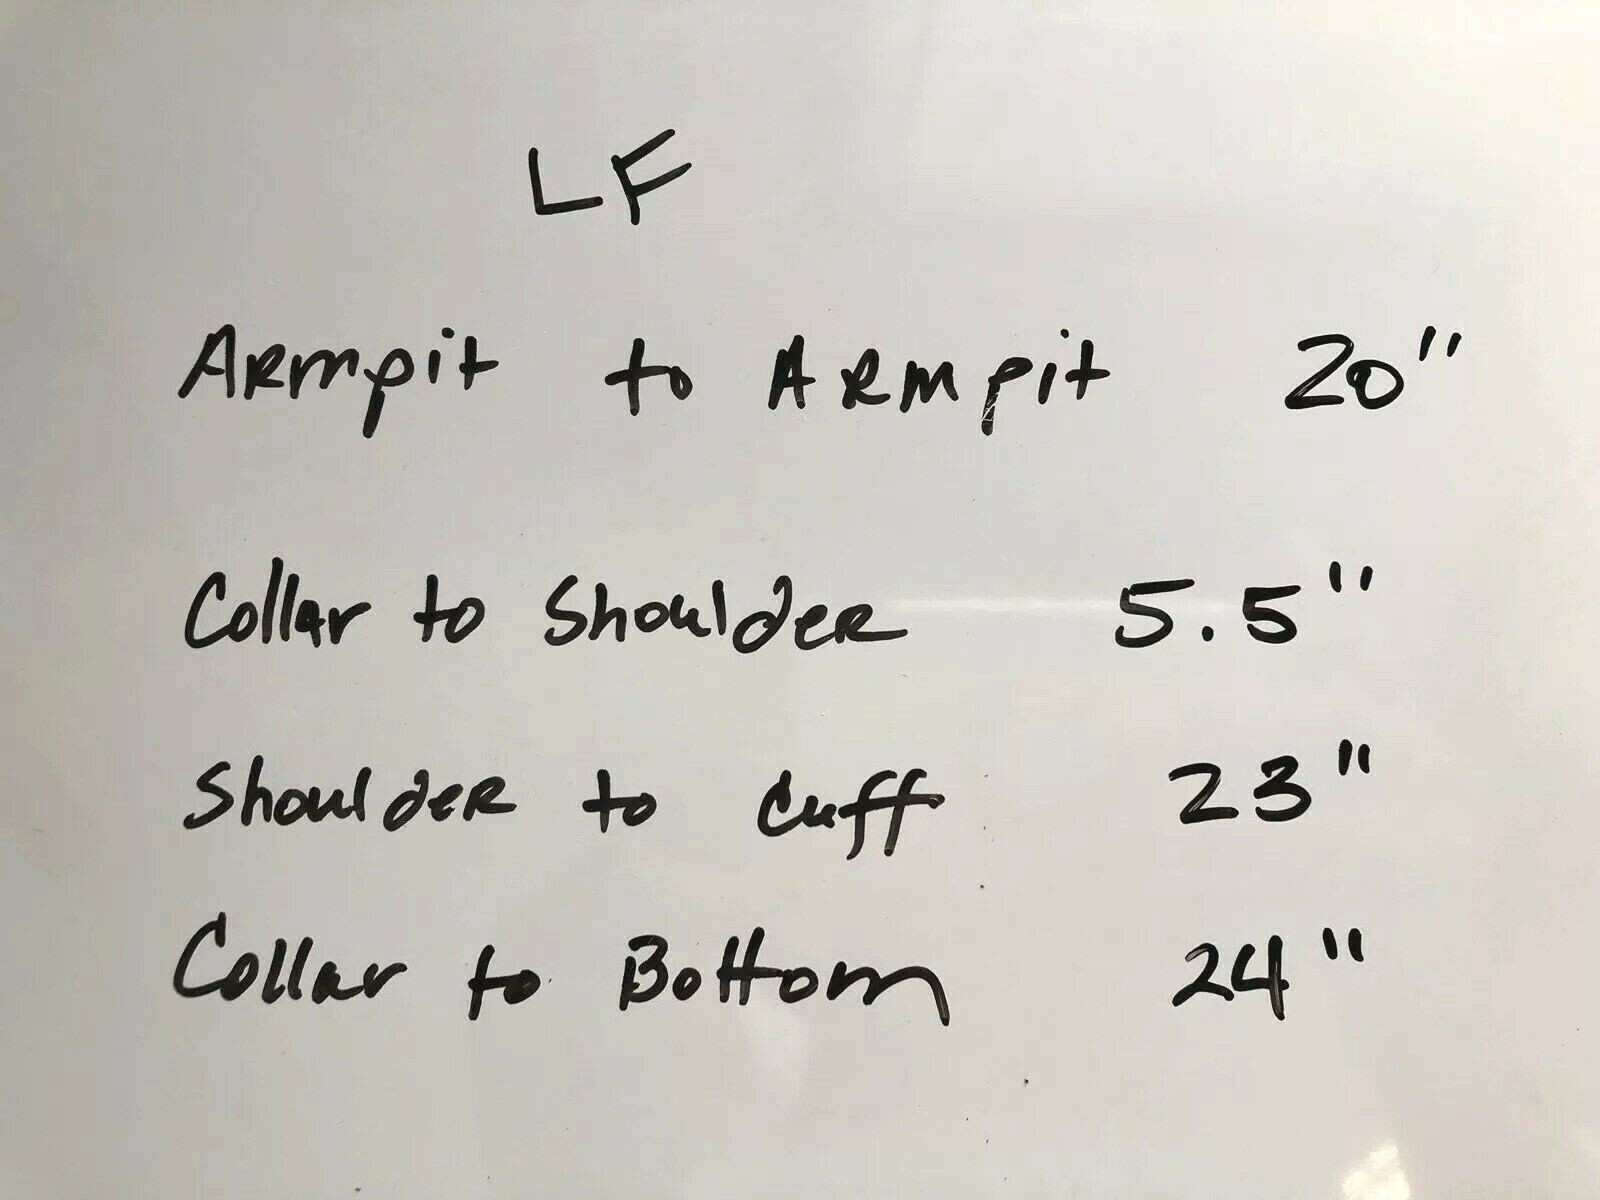 LF
Armpit to Armpit 20"
Collar to Shoulder 5.5"
Shoulder to Cuff 23"
Collar to Bottom 24"